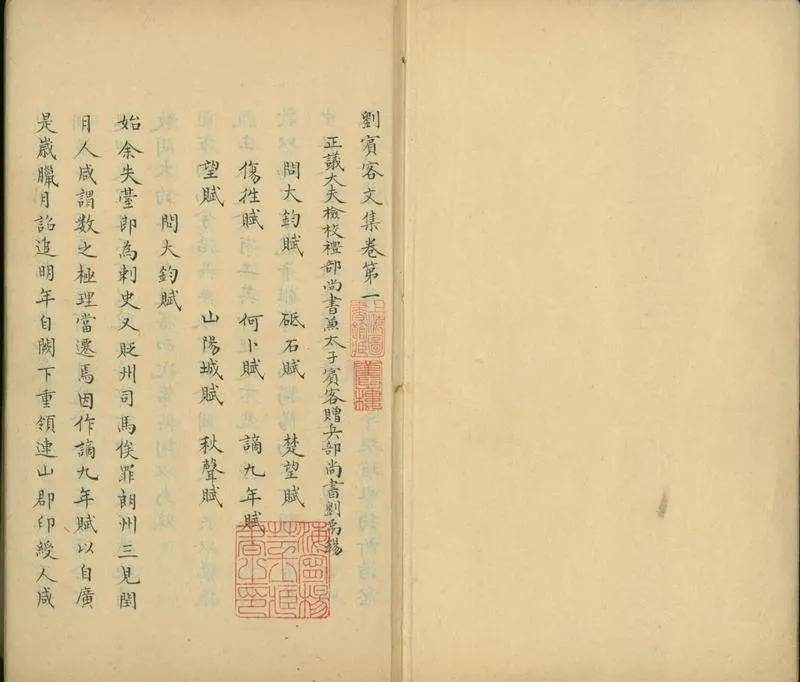 劉賓客文集卷第一
正議大夫檢校禮部尚書兼太子賓客贈兵部尚書劉禹錫
問大鈞賦 砥石賦 楚望賦
傷往賦 何卜賦 謫九年賦
望賦 山陽城賦 秋聲賦
問大鈞賦
始余失臺郎為刺史又貶州司馬俟罪朗州三見閏
月人咸謂数之極理當遷焉因作謫九年賦以自廣
是歲臘月詔追明年自闕下重領連山郡印綬人咸